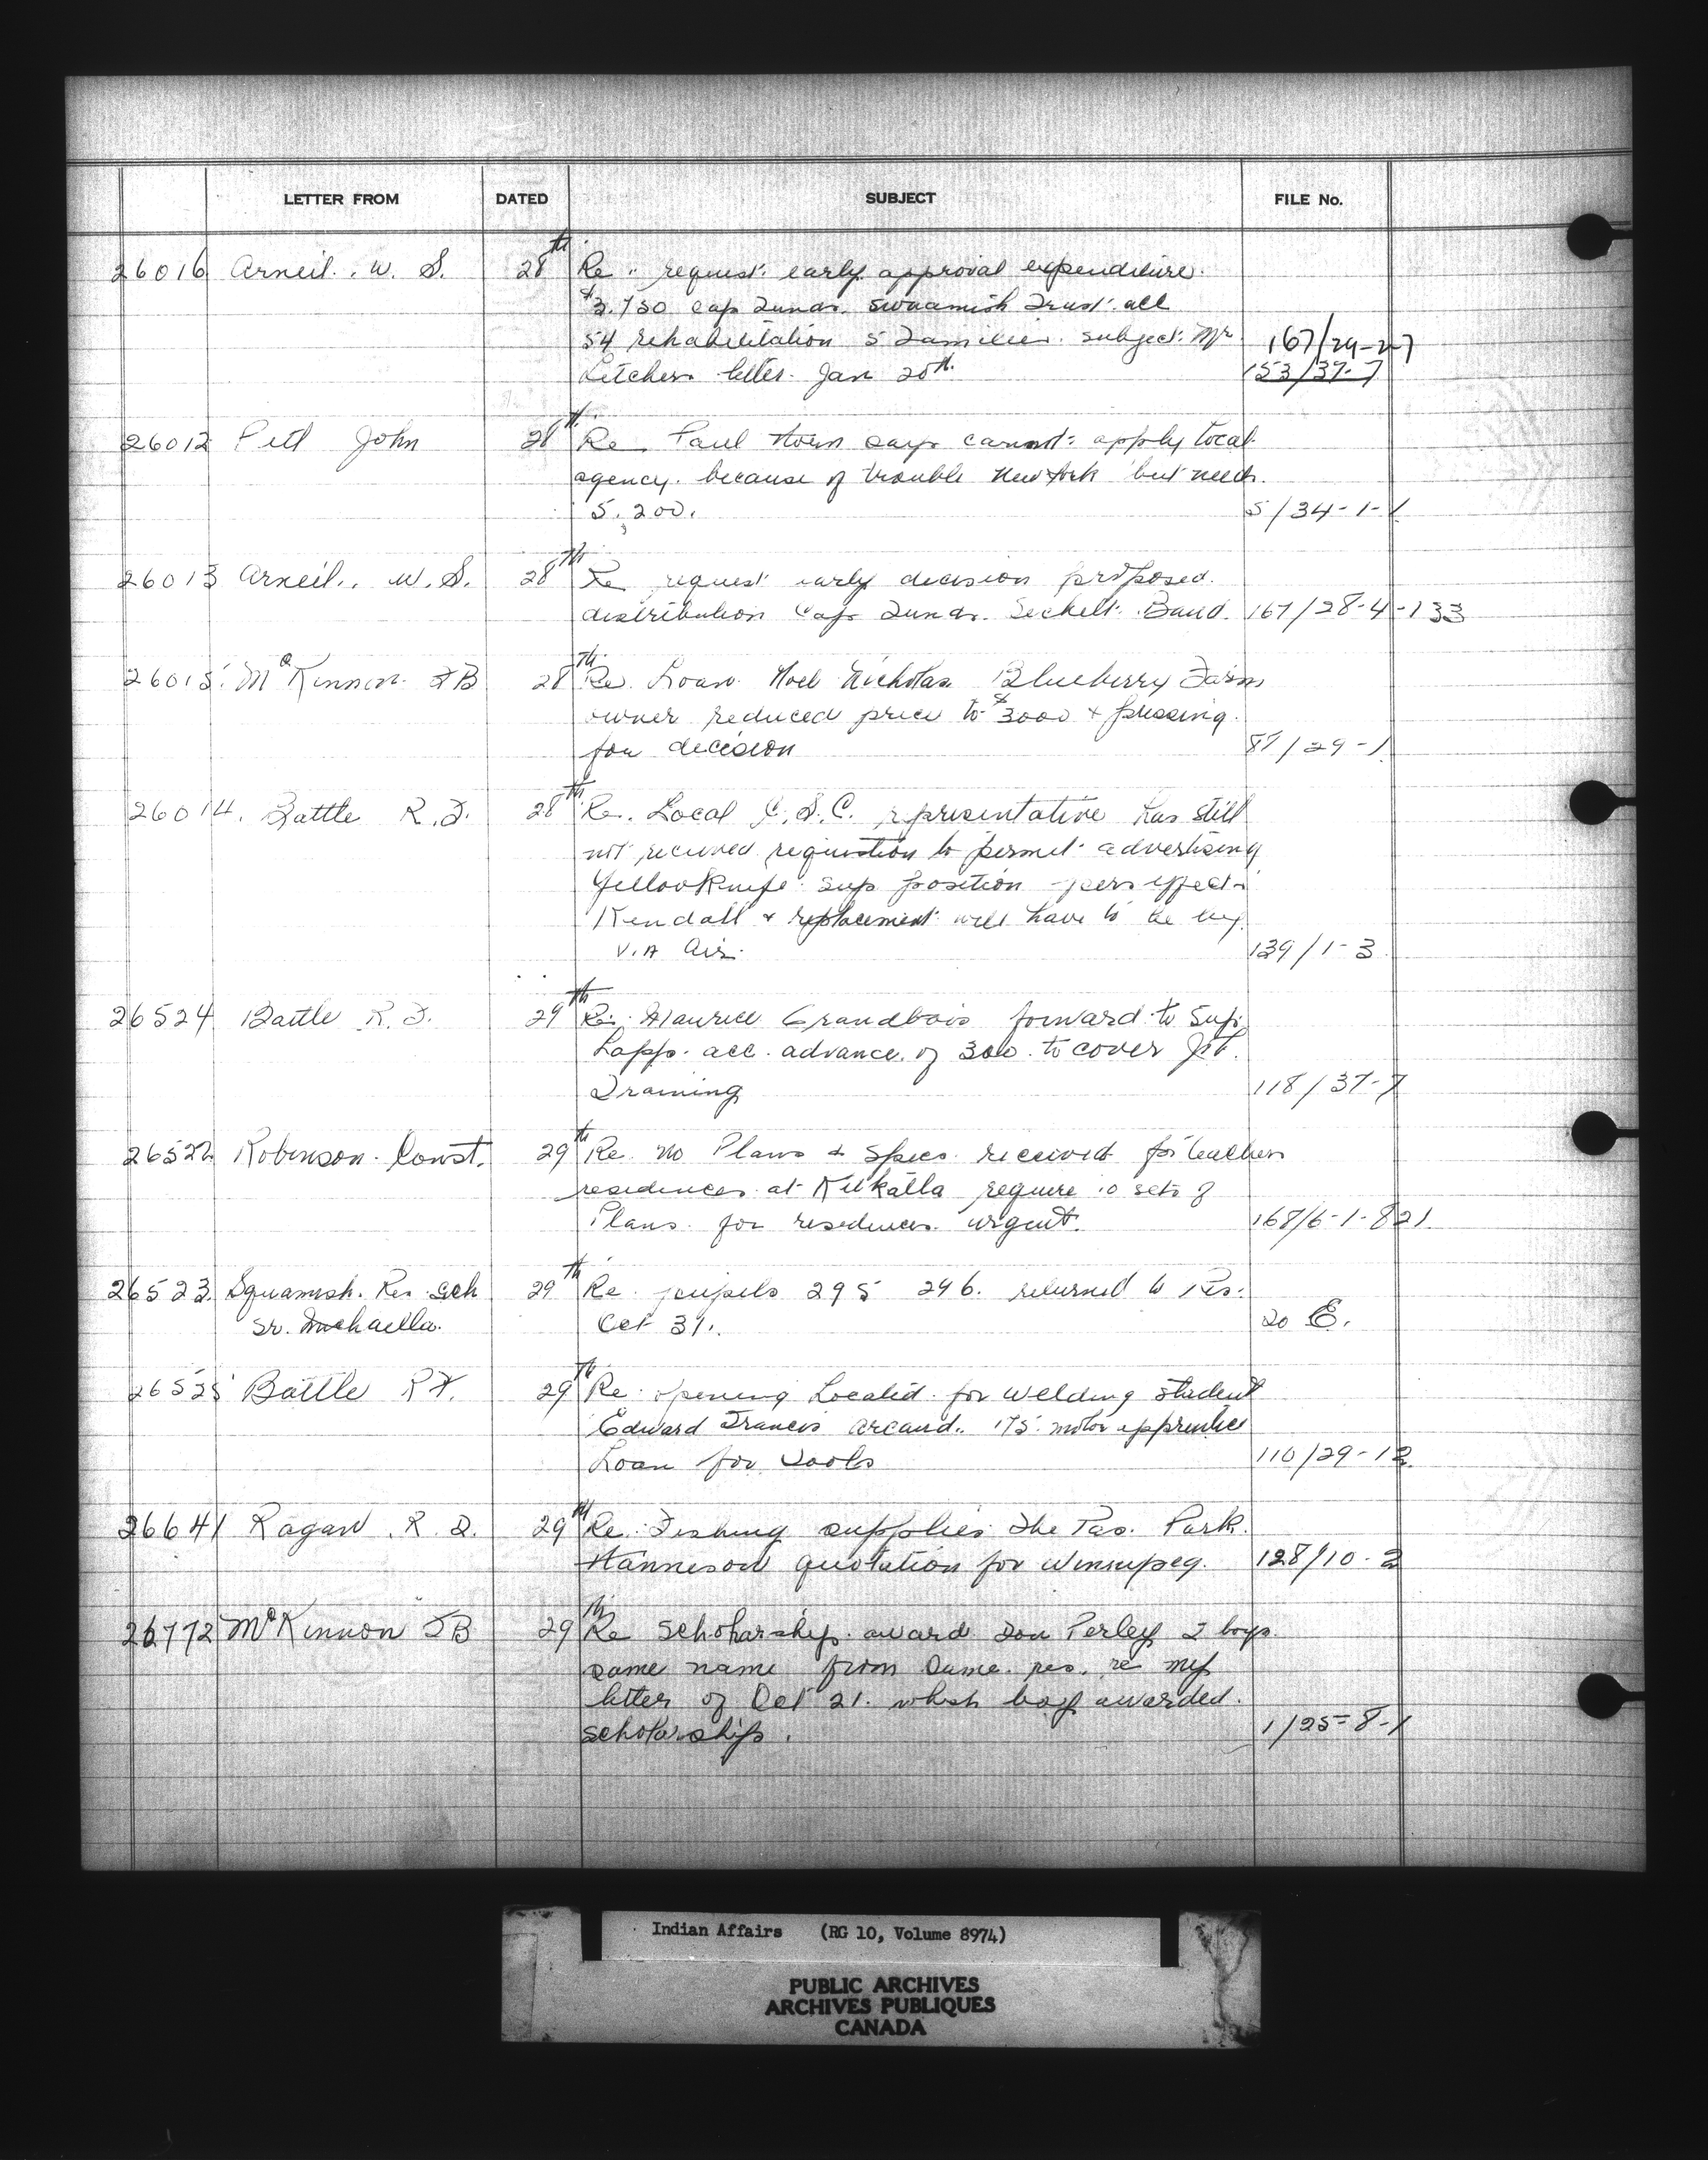 LETTER FROM DATED SUBJECT FILE No.
26016 Arneil. W. S. 28th Re. request early approval expenditure.
$3,750 Cap Funds. Squamish Trust acc
54 rehabilitation 5 Families. subject Mr 167/29-2-7
Letcher letter Jan 20th. 153/37-7
26012 Pett John 28th Re Paul Horn says cannot apply local
agency. because of trouble New York but needs.
5,200. 5/34-1-1
26013 Arneil. W. S. 28th Re request early decision proposed.
distribution Cap Funds. Sechelt Band. 167/28-4-133
26015 McKinnon FB 28th Re Loan Noel Nicholas Blueberry Farm
owner reduced price to $3000 + pressing.
for decision 87/29-1
26014. Battle R.F. 28th Re. Local C.S.C. representative has still
not received requisition to permit advertising
Yellowknife Sup position
Kendall & replacement will have to be
Air. 139/1-3
26524 Battle R.F. 29th Re. Maurice Grandbois forward to Sup
Lapp. acc. advance of 300. to cover
Training 118/37-7
26522 Robinson Const. 29th Re. No Plans & Specs received for teachers
residences at require 10 sets of
Plans. for residences. urgent. 168/6-1-821
26523. Squamish. Res Sch 29th Re. pupils 295 296. returned to Res.
Sr. Michaella. Oct 31. 20 E.
26525 Battle RF. 29th Re. opening Located for welding student
Edward Francis Arcand.. 175 motor apprentice
Loan for Tools 110/29-12
26641 Ragan R. D. 29th Re. Fishing supplies The Pas. Park.
Hanneson quotation for Winnipeg. 128/10-2
26772 McKinnon FB 29th Re Scholarship award Don Perley 2 boys.
same name from same res. re my
letter of Oct 21. which boy awarded.
scholarship. 1/25-8-1
Indian Affairs (RG 10, Volume 8974)
PUBLIC ARCHIVES
ARCHIVES PUBLIQUES
CANADA